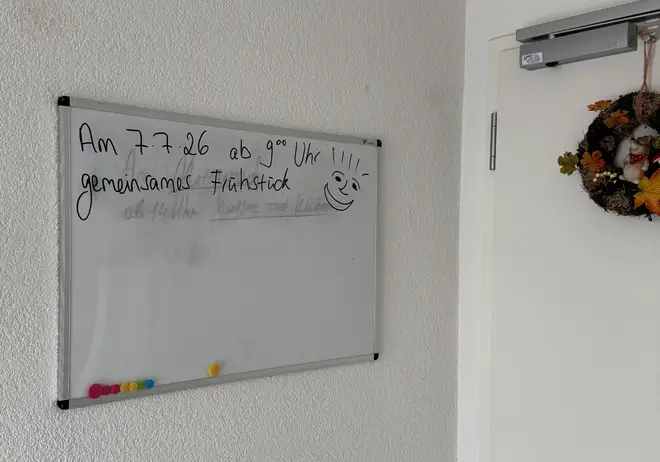 Am 7.7.26 ab 9⁰⁰ Uhr
gemeinsames Frühstück
ab 14 Uhr Kaffee und Kuchen